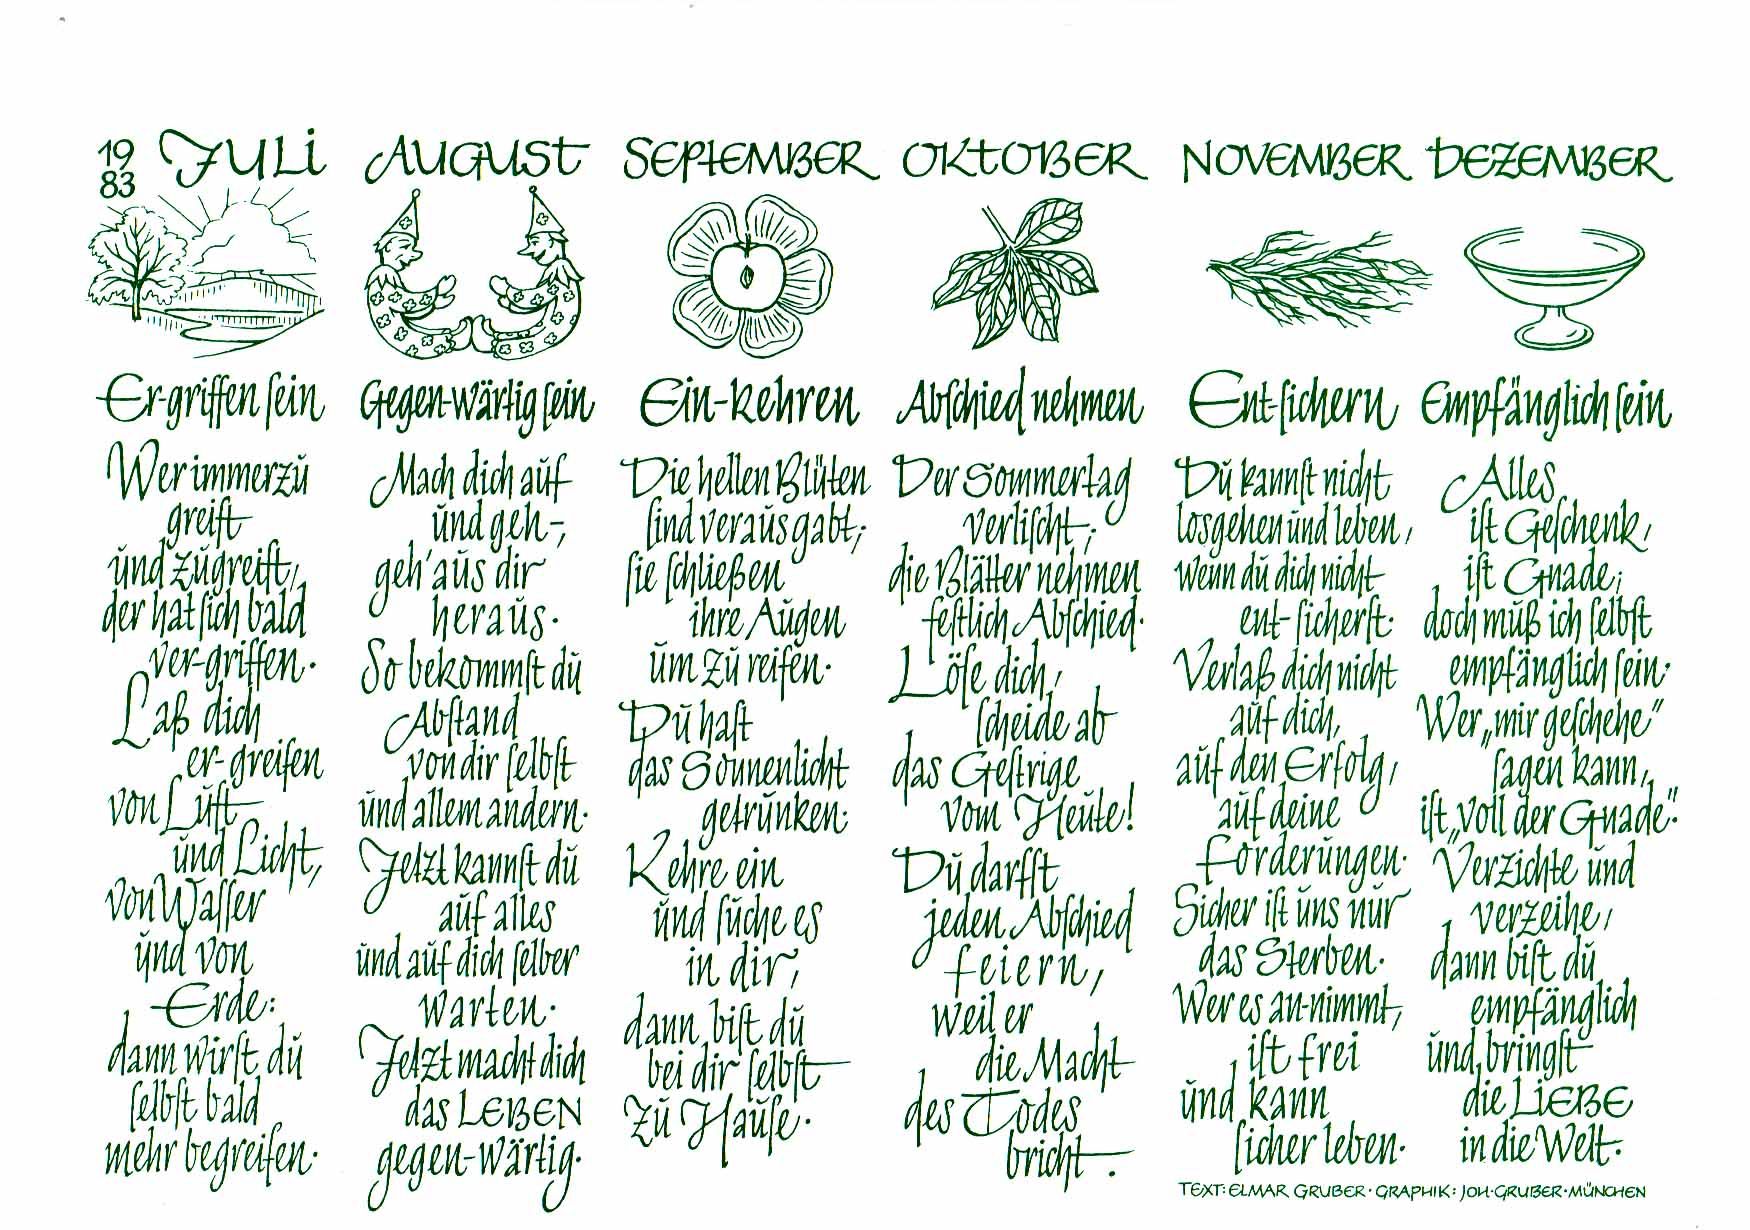 19
83
JULI
Er-griffen sein
Wer immerzu
greift
und zugreift,
der hat sich bald
ver-griffen.
Laß dich
er-greifen
von Luft
und Licht,
von Wasser
und von
Erde:
dann wirst du
selbst bald
mehr begreifen.
AUGUST
Gegen-wärtig sein
Mach dich auf
und geh-,
geh' aus dir
heraus.
So bekommst du
Abstand
von dir selbst
und allem andern.
Jetzt kannst du
auf alles
und auf dich selber
warten.
Jetzt macht dich
das LEBEN
gegen-wärtig.
SEPTEMBER
Ein-kehren
Die hellen Blüten
sind verausgabt;
sie schließen
ihre Augen
um zu reifen.
Du hast
das Sonnenlicht
getrunken:
Kehre ein
und suche es
in dir,
dann bist du
bei dir selbst
zu Hause.
OKTOBER
Abschied nehmen
Der Sommertag
verlischt;
die Blätter nehmen
festlich Abschied.
Löse dich,
scheide ab
das Gestrige
vom Heute!
Du darfst
jeden Abschied
feiern,
weil er
die Macht
des Todes
bricht.
NOVEMBER
Ent-sichern
Du kannst nicht
losgehen und leben,
wenn du dich nicht
ent-sicherst.
Verlaß dich nicht
auf dich,
auf den Erfolg,
auf deine
Forderungen.
Sicher ist uns nur
das Sterben.
Wer es an-nimmt,
ist frei
und kann
sicher leben.
DEZEMBER
Empfänglich sein
Alles
ist Geschenk,
ist Gnade;
doch muß ich selbst
empfänglich sein.
Wer „mir geschehe"
sagen kann,
ist „voll der Gnade".
Verzichte und
verzeihe,
dann bist du
empfänglich
und bringst
die LIEBE
in die Welt.
TEXT: ELMAR GRUBER · GRAPHIK: JOH · GRUBER · MÜNCHEN